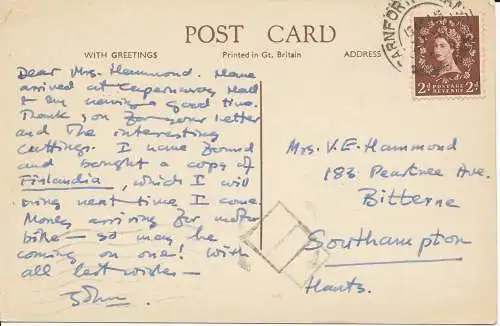 POST CARD
WITH GREETINGS
Printed in Gt, Britain
ADDRESS
Dear Mrs. Hammond. Have
arrived at Capernwray Hall
& am having a good time.
Thank you for your letter
and the interesting
cuttings. I have found
and bought a copy of
Finlandia, which I will
bring next time I come.
Money arriving for motor
bike — so may be
coming on one! With
all best wishes —
John.
Mrs. V.E. Hammond
183 Peartree Ave.
Bitterne
Southampton
Hants.
CARNFORTH
2d POSTAGE REVENUE 2d